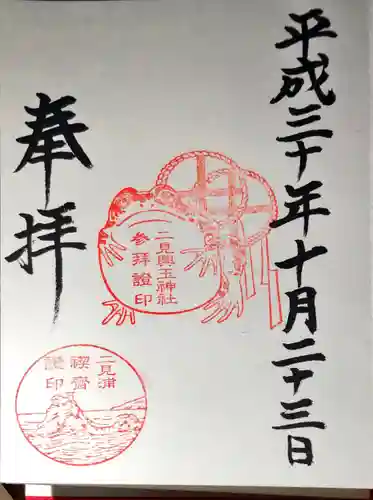 平成三十年十月二十三日
奉拝
二見興玉神社
参拝證印
二見浦
禊齋
證印